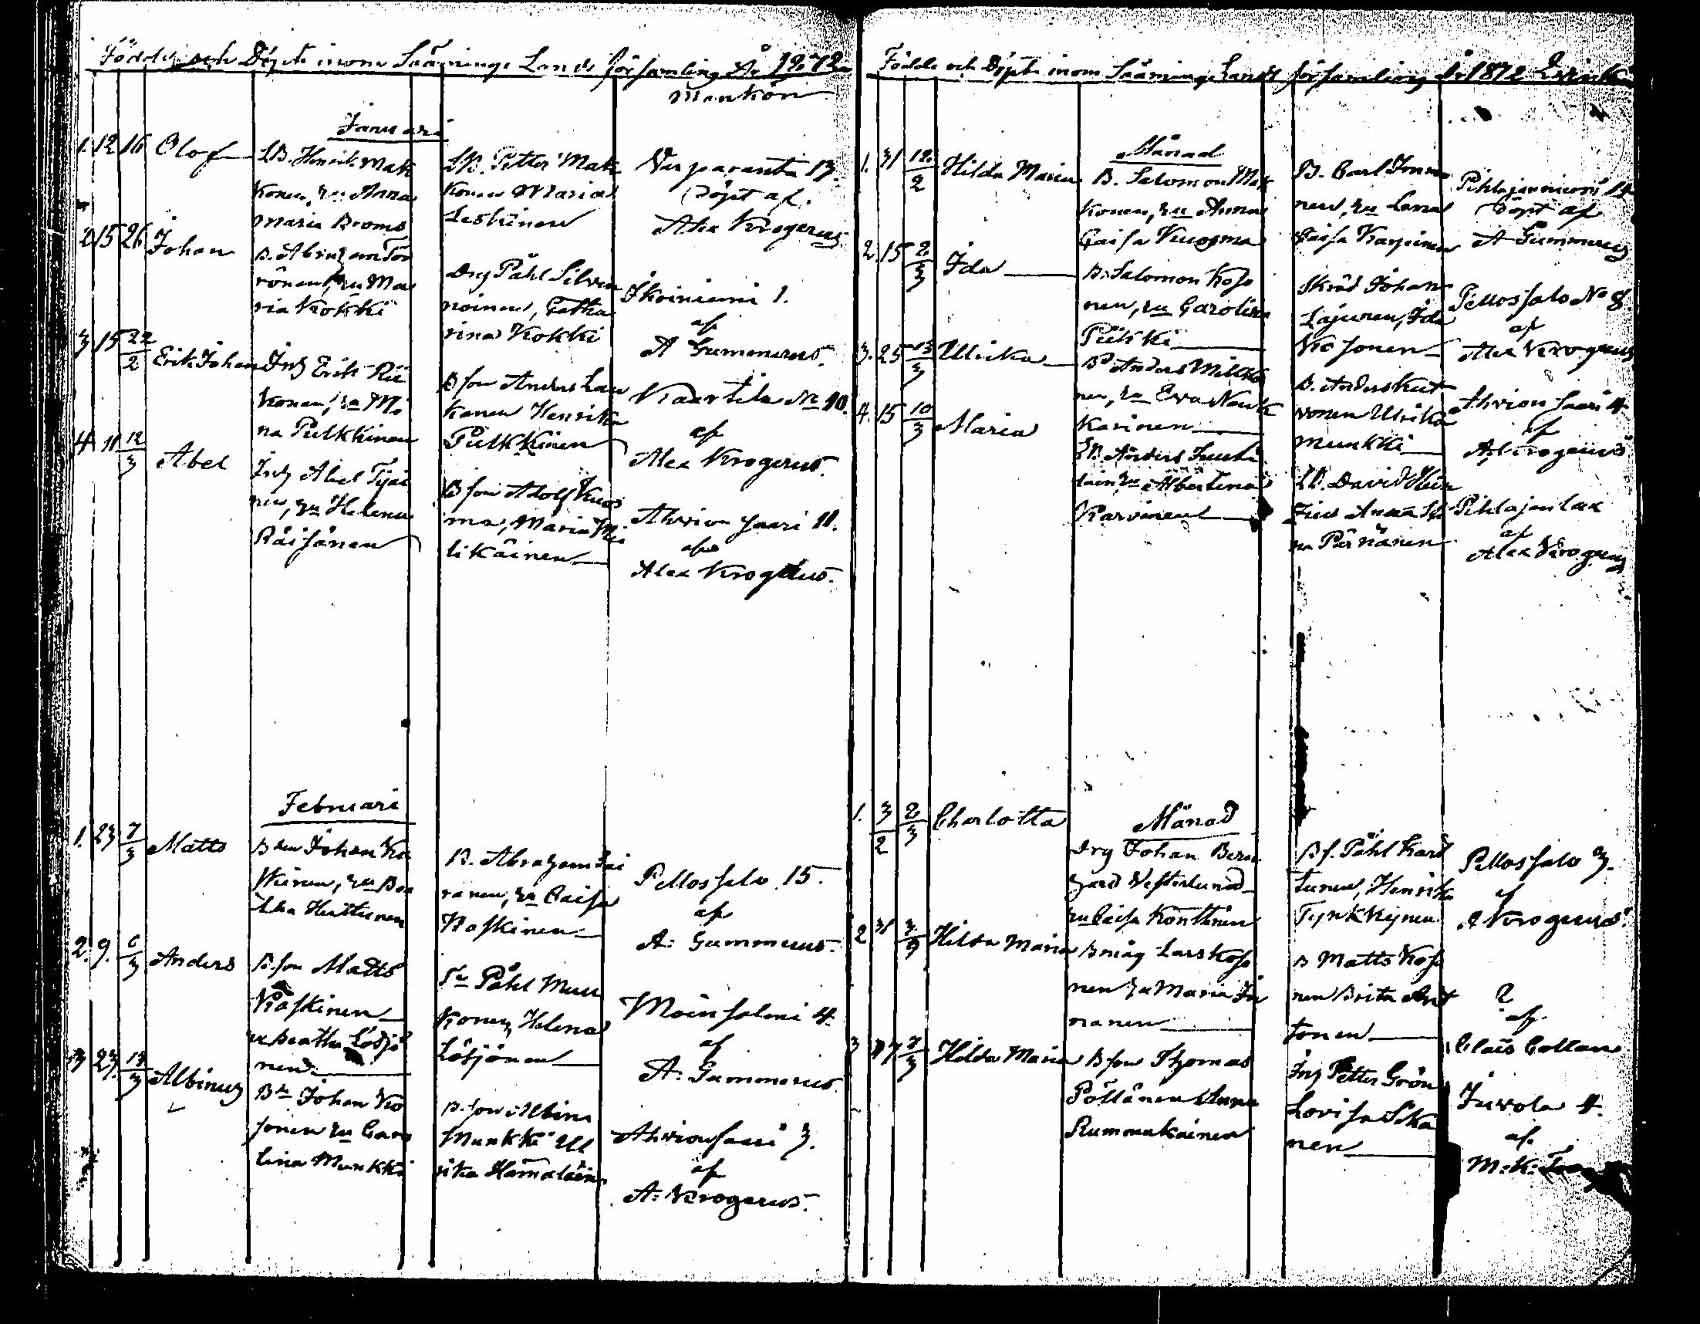 Födde och Döpte inom Sääminge Lands församling År 1872
Mankön
Januari
1. 12 16 Olof
LB. Henrik Mak
konen, Anna
Maria Broms
LB. Petter Mak
konen Maria
Leskinen
Varparanta 13.
Döpt af
Alex Krogerus
2. 15 26 Johan
B. Abraham Tor
rönen, Ma
ria Kokki
Drg Påhl Silven
noinen, Catha
rina Kokki
Ikoiniemi 1.
af
A Gummerus.
3. 15 22/2 Erik Johan
Inh Erik Rii
konen, Mi
na Pulkkinen
Bson Anders Lau
kanen Henrika
Pulkkinen
Kaartila No 10.
af
Alex Krogerus.
4. 11 12/3 Abel
Inh Abel Tyni
nen, Helena
Räisänen
Bson Adolf Kuos
ma, Maria Mi
likäinen
Ahvionsaari 11.
af
Alex Krogerus.
Februari
1. 23 7/3 Matts
Johan Ko
skinen, Bea
ta Huttunen
B. Abraham Pai
ranen, Caisa
Koskinen
Pellossalo 15.
af
A: Gummerus.
2. 9. 6/3 Anders
Bson Matts
Koskinen
Beatha Lösjö
nen
Påhl Muu
konen, Helena
Lösjönen
Moinsalmi 4.
af
A: Gummerus
3 23. 19/3 Albinus
Johan Ko
sonen Caro
lina Munkki
B. son Albin
Munkki Ul
rika Hämäläinen
Ahvionsaari 3.
af
A: Krogerus.
Födde och Döpte inom Sääminge Lands församling År 1872 Qvinkön
Månad
1. 31 12/2 Hilda Maria
B. Salomon Mak
konen, Anna
Caisa Kuosma
B. Carl Immo
nen, Lena
Caisa Karjunen
Pihlajaniemi 14
Döpt af
A Gummerus
2. 15 2/3 Ida
B. Salomon Koso
nen, Carolina
Pulkki
Johan
Lajunen, Ida
Kosonen
Pellossalo No 8.
af
Alex Krogerus
3. 25 13/3 Ulrika
Anders Mikko
nen, Eva Nouk
karinen
B. Anders Kut
vonen Ulrika
Munkki
Ahvionsaari 4
af
A Krogerus
4. 15 10/3 Maria
LB. Anders
Albertina
Karvinen
LB. David Hein
Anna Sti
na Pärnänen
Pihlajanlax
af
Alex Krogerus
Månad
1. 3/2 2/3 Charlotta
Drg Johan Bern
hard Vesterlund
Caisa Konttinen
Bs. Påhl Kart
tunen, Henrika
Tynkkynen
Pellossalo 3.
af
A Krogerus.
2 Hilda Maria
Bmåg Lars Koso
nen Maria In
nanen
B Matts Koso
nen Brita Ant
tonen
?
af
Claës Collan
3 7 7/3 Hilda Maria
Bson Thomas
Pöllänen Anna
Rummukainen
Inh Petter Grön
Lovisa Ika
nen
Juvola 4.
af
M. K.